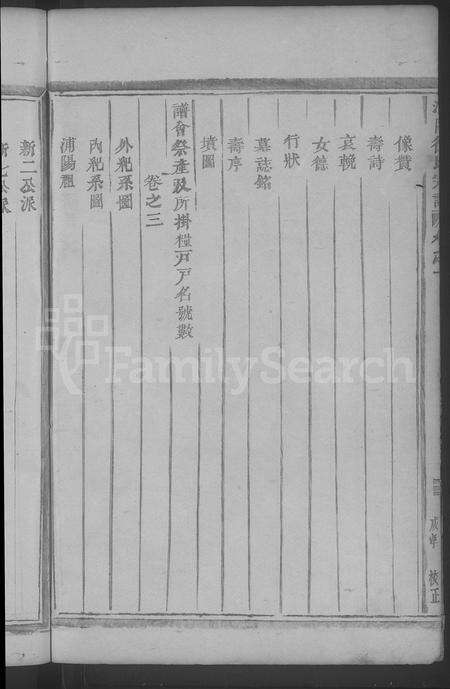 像贊
壽詩
哀輓
女德
行狀
墓誌銘
壽序
墳圖
譜會祭產及所掛糧戸戸名號數
卷之三
外紀系圖
內紀系圖
浦陽龍
新一公派
公派
校正
FamilySearch